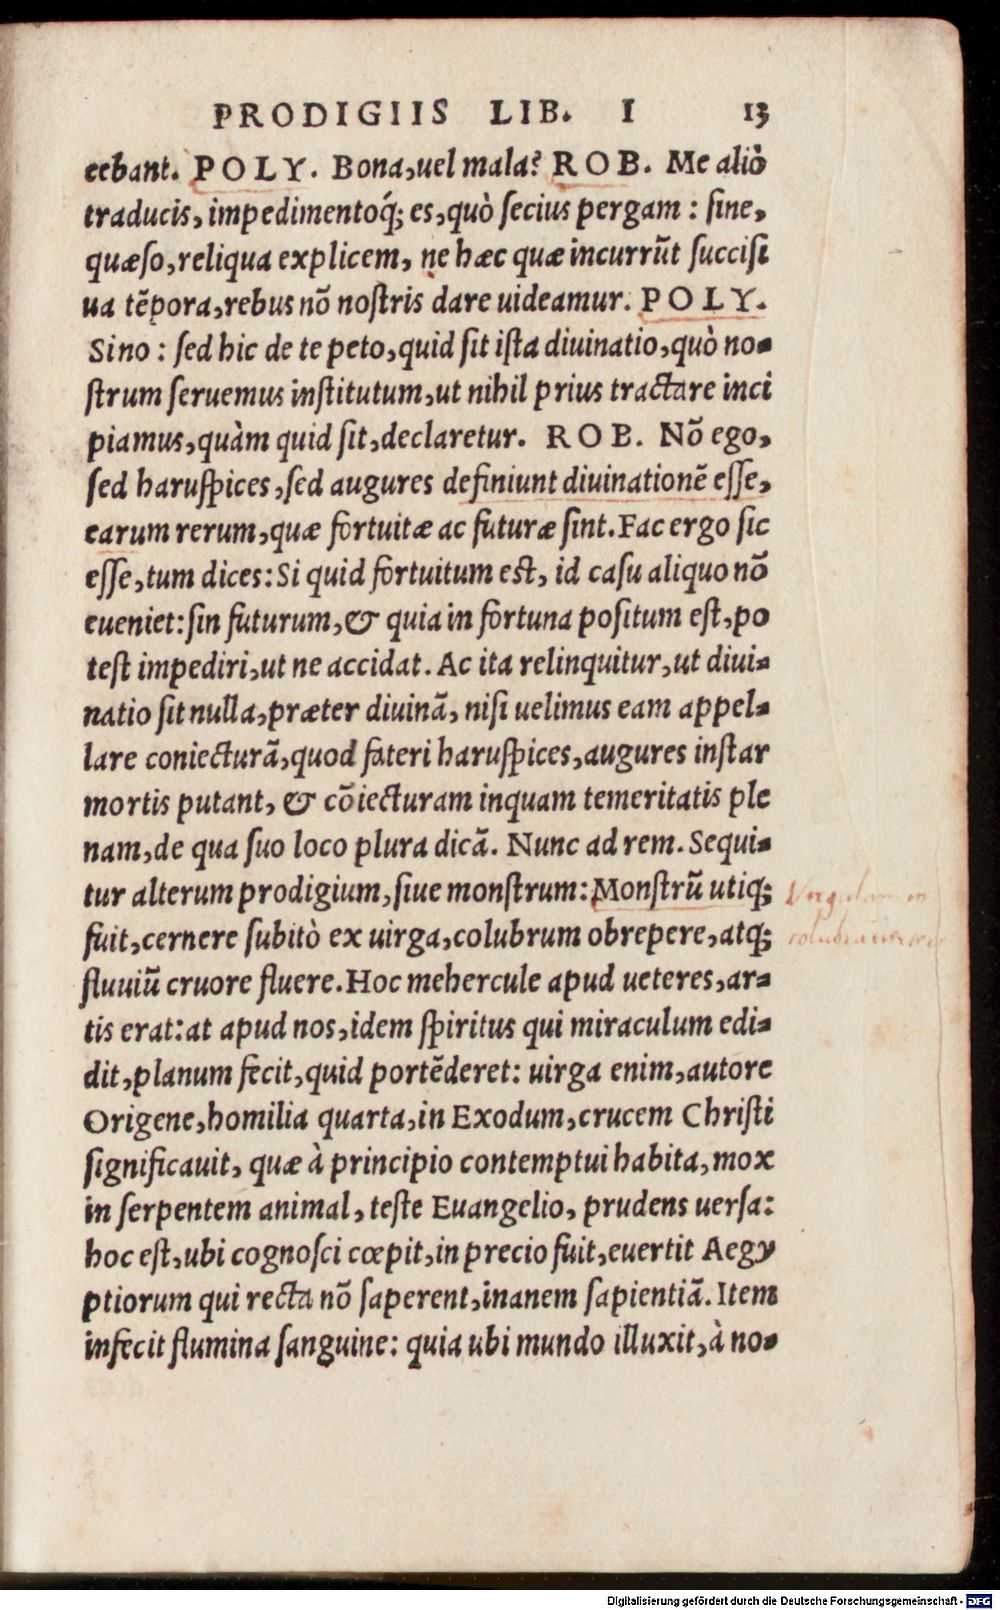 PRODIGIIS LIB. I 13
cebant. POLY. Bona, uel mala? ROB. Me aliò
traducis, impedimentoq́; es, quò secius pergam: sine,
quæso, reliqua explicem, ne hæc quæ incurrũt succisi
ua tẽpora, rebus nõ nostris dare uideamur. POLY.
Sino: sed hic de te peto, quid sit ista diuinatio, quò no-
strum seruemus institutum, ut nihil prius tractare inci
piamus, quàm quid sit, declaretur. ROB. Nõ ego,
sed haruspices, sed augures definiunt diuinationẽ esse,
earum rerum, quæ fortuitæ ac futuræ sint. Fac ergo sic
esse, tum dices: Si quid fortuitum est, id casu aliquo nõ
eueniet: sin futurum, & quia in fortuna positum est, po
test impediri, ut ne accidat. Ac ita relinquitur, ut diui-
natio sit nulla, præter diuinã, nisi uelimus eam appel-
lare coniecturã, quod fateri haruspices, augures instar
mortis putant, & cõiecturam inquam temeritatis ple
nam, de qua suo loco plura dicã. Nunc ad rem. Sequi-
tur alterum prodigium, siue monstrum: Monstrũ utiq;
fuit, cernere subitò ex uirga, colubrum obrepere, atq;
fluuiũ cruore fluere. Hoc mehercule apud ueteres, ar-
tis erat: at apud nos, idem spiritus qui miraculum edi-
dit, planum fecit, quid portẽderet: uirga enim, autore
Origene, homilia quarta, in Exodum, crucem Christi
significauit, quæ à principio contemptui habita, mox
in serpentem animal, teste Euangelio, prudens uersa:
hoc est, ubi cognosci cœpit, in precio fuit, euertit Aegy
ptiorum qui recta nõ saperent, inanem sapientiã. Item
infecit flumina sanguine: quia ubi mundo illuxit, à no-
Digitalisierung gefördert durch die Deutsche Forschungsgemeinschaft - DFG